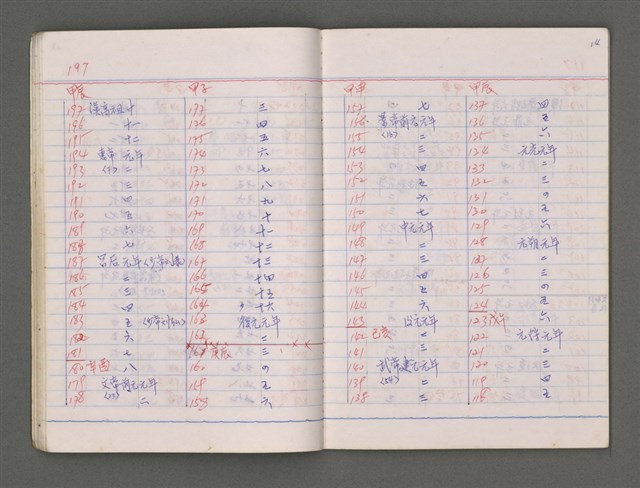 197
甲辰
197 漢高祖十
196 十一
195 十二
194 惠帝 元年
193 二
192 三
191 四
190 五
189 六
188 七
187 呂后元年
186 二
185 三
184 四
183 五
182 六
181 七
180 辛酉 八
179 文帝前元元年
178 二
甲子
177 三
176 四
175 五
174 六
173 七
172 八
171 九
170 十
169 十一
168 十二
167 十三
166 十四
165 十五
164 十六
163 後元元年
162 二
161 庚辰 三
160 四
159 五
158 六
甲申
157 七
156 景帝前元元年
155 二
154 三
153 四
152 五
151 六
150 七
149 中元元年
148 二
147 三
146 四
145 五
144 六
143 后元元年
142 己亥 二
141 三
140 武帝建元元年
139 二
138 三
甲辰
137 四
136 五
135 六
134 元光元年
133 二
132 三
131 四
130 五
129 六
128 元朔元年
127 二
126 三
125 四
124 五
123 戊午 六
122 元狩元年
121 二
120 三
119 四
118 五